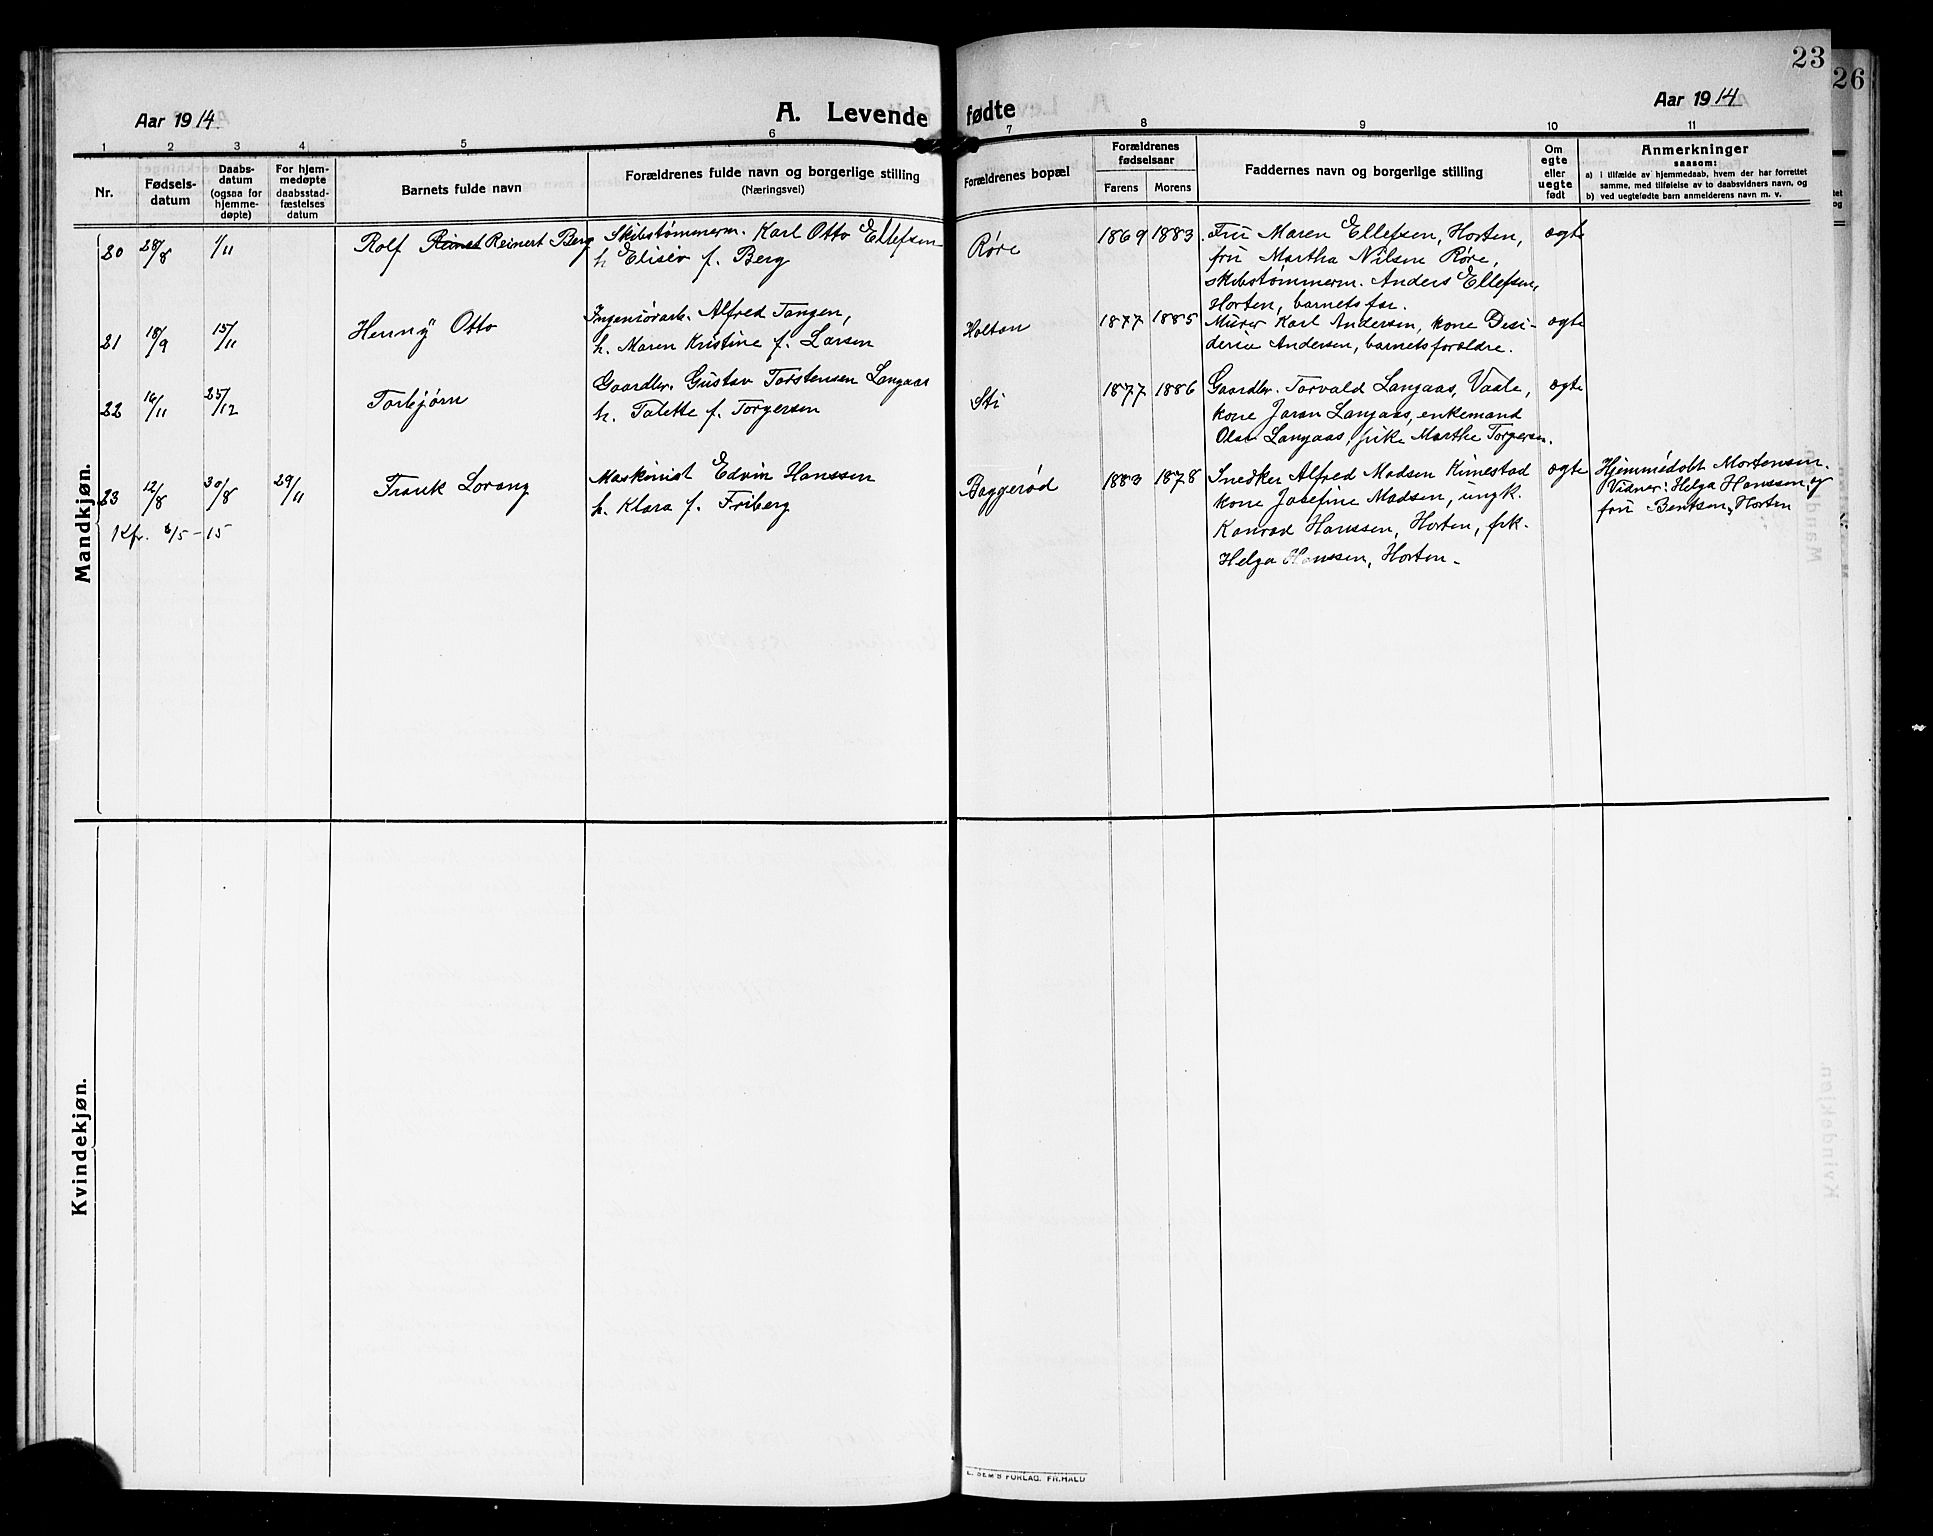 23
26
Aar 1914
A. Levende fødte
Aar 1914
1 2 3 4 5 6 7 8 9 10 11
Nr.
Fødsels-
datum
Daabs-
datum
(ogsaa for
hjemme-
døpte)
For hjem-
medøpte
daabsstad-
fæstelses
datum
Barnets fulde navn
Forældrenes fulde navn og borgerlige stilling
(Næringsvei)
Forældrenes bopæl
Forældrenes
fødselsaar
Farens Morens
Faddernes navn og borgerlige stilling
Om
egte
eller
uegte
født
Anmerkninger
saasom:
a) i tilfælde av hjemmedaab, hvem der har forrettet
samme, med tilføielse av to daabsvidners navn, og
b) ved uegtefødte barn anmelderens navn m. v.
Mandkjøn.
20 28/8 1/11 Rolf Reinert Berg
Skibstømmerm. Karl Otto Ellefsen
h. Elisiv f. Berg
Røre 1869 1883
Fru Maren Ellefsen, Horten,
fru Martha Nilsen Røre,
skibstømmerm. Anders Ellefsen,
Horten, barnets far.
egte
21 18/9 15/11 Henny Otto
Ingeniørarb. Alfred Tangen,
h. Maren Kristine f. Larsen
Holtan 1877 1885
Murer Karl Andersen, kone Desi-
deria Andersen, barnets forældre.
egte
22 16/11 25/12 Torbjørn
Gaardbr. Gustav Torstensen Langaas
h. Talette f. Torgersen
Sti 1877 1886
Gaardbr. Torvald Langaas, Vaale,
kone Jaran Langaas, enkemand
Olav Langaas, pike Marthe Torgersen.
egte
23 12/8 30/8 29/11 Frank Lorang
1 Kfr. 6/5-15
Maskinist Edvin Hanssen
h. Klara f. Friberg
Baggerød 1883 1878
Snedker Alfred Madsen Kimestad
kone Josefine Madsen, ungk.
Konrad Hanssen, Horten, frk.
Helga Hanssen, Horten.
egte
Hjemmedøbt Mortensen.
Vidner: Helga Hanssen, og
fru Bentsen, Horten
Kvindekjøn.
E. SEM'S FORLAG. FR.HALD